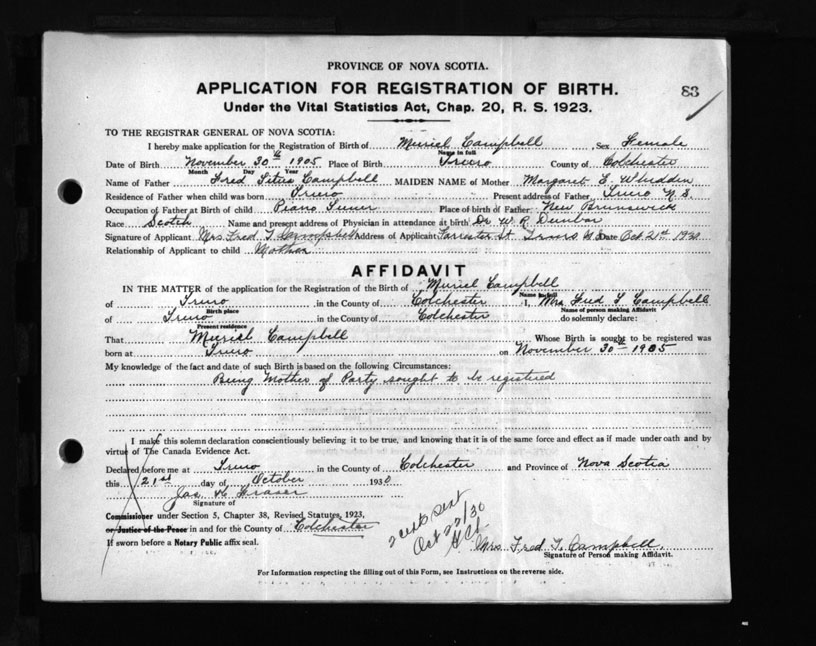 PROVINCE OF NOVA SCOTIA.
APPLICATION FOR REGISTRATION OF BIRTH.
83
Under the Vital Statistics Act, Chap. 20, R. S. 1923.
TO THE REGISTRAR GENERAL OF NOVA SCOTIA:
I hereby make application for the Registration of Birth of Muriel Campbell, Sex Female
Name in full
Date of Birth November 30th 1905 Place of Birth Truro County of Colchester
Month Day Year
Name of Father Fred Titus Campbell MAIDEN NAME of Mother Margaret E. Whidden
Residence of Father when child was born Truro Present address of Father Truro N.S.
Occupation of Father at Birth of child Piano Tuner Place of birth of Father New Brunswick
Race Scotch Name and present address of Physician in attendance at birth Dr W. R. Dunbar
Signature of Applicant Mrs Fred T Campbell Address of Applicant Forrester St Truro N.S. Date Oct 21st 1930
Relationship of Applicant to child Mother
AFFIDAVIT
IN THE MATTER of the application for the Registration of the Birth of Muriel Campbell
Name in full
of Truro in the County of Colchester I, Mrs Fred T Campbell
Birth place Name of person making Affidavit
of Truro in the County of Colchester do solemnly declare:
Present residence
That Muriel Campbell Whose Birth is sought to be registered was
born at Truro on November 30th 1905
My knowledge of the fact and date of such Birth is based on the following Circumstances:
Being Mother of Party sought to be registered
I make this solemn declaration conscientiously believing it to be true, and knowing that it is of the same force and effect as if made under oath and by
virtue of The Canada Evidence Act.
Declared before me at Truro in the County of Colchester and Province of Nova Scotia
this 21st day of October 1930
Jas H Fraser
Signature of
Commissioner under Section 5, Chapter 38, Revised Statutes, 1923,
or Justice of the Peace in and for the County of Colchester
If sworn before a Notary Public affix seal.
2 certs sent
Oct 22/30
Mrs. Fred T. Campbell
Signature of Person making Affidavit.
For Information respecting the filling out of this Form, see Instructions on the reverse side.